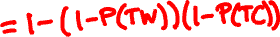 = 1 - (1 - P(TW))(1 - P(TC))